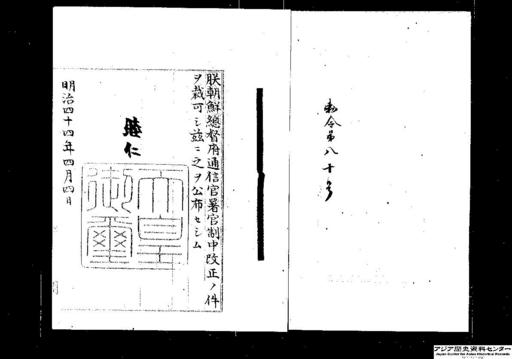 勅令第八十号
朕朝鮮總督府通信官署官制中改正ノ件
ヲ裁可シ茲ニ之ヲ公布セシム
睦仁
天皇
御璽
明治四十四年四月四日
アジア歴史資料センター
Japan Center for Asian Historical Records